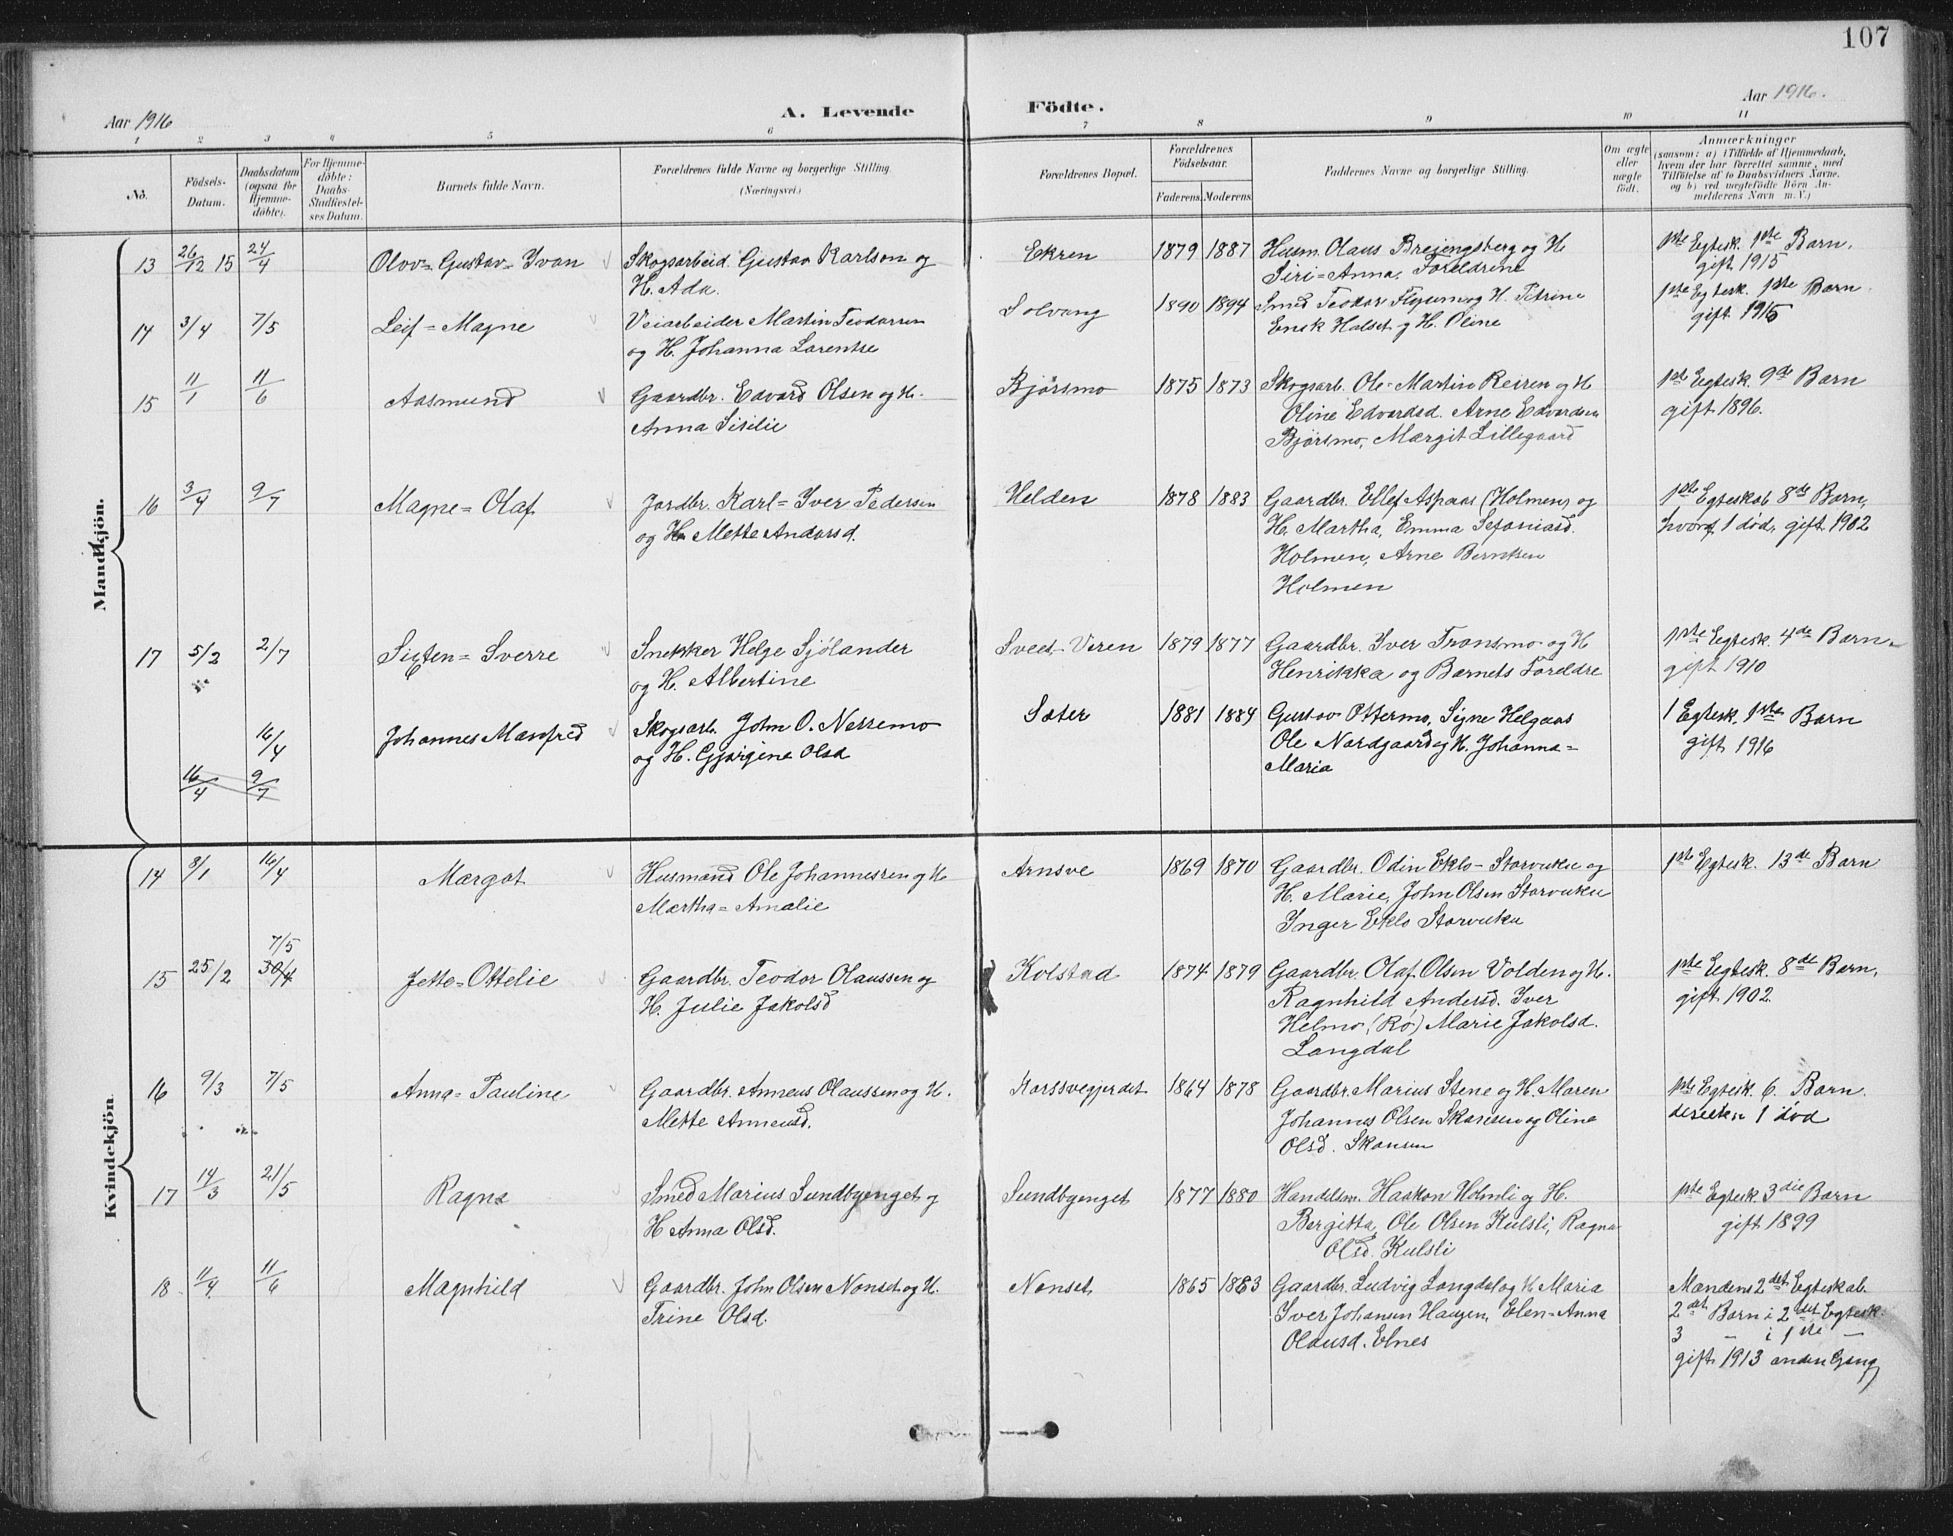 107
Aar 1916
A. Levende Födte.
Aar 1916.
1 2 3 4 5 6 7 8 9 10 11
No.
Födsels-
Datum.
Daabsdatum
(ogsaa for
Hjemme-
döbte).
For Hjemme-
döbte:
Daabs-
Stadfæstel-
ses Datum.
Barnets fulde Navn.
Forældrenes fulde Navne og borgerlige Stilling.
(Næringsvei.)
Forældrenes Bopæl.
Forældrenes
Födselsaar.
Faderens. Moderens.
Faddernes Navne og borgerlige Stilling.
Om ægte
eller
uægte
födt.
Anmærkninger
(saasom: a) i Tilfælde af Hjemmedaab,
hvem der har forrettet samme, med
Tilföielse af to Daabsvidners Navne,
og b) ved uegtefödte Börn An-
melderens Navn m. V.)
Mandkjön.
13 26/12 15 24/4 Olov= Gustav= Yvan
Skogsarbeid. Gustav Karlson og
H. Ada.
Ekren 1879 1887
Husm. Olaus Breiengsberg og H
Siri=Anna, Foreldrene
1ste Egtesk. 1ste Barn.
gift 1915
14 3/4 7/5 Leif=Magne
Veiarbeider Martin Teodorsen
og H. Johanna Larentse
Solvang 1890 1894
Smed Teodor og H. Petrine
Halset og H. Oline
1ste Egtesk. 1ste Barn.
gift 1915
15 11/1 11/6 Aasmund
Gaardbr. Edvard Olsen og H.
Anna Sisilie
Bjørsmo 1875 1873
Skogsarb. Ole-Martin Reiren og H
Oline Edvardsd. Arne Edvardsen
Bjørsmo, Margit Lillegaard
1ste Egtesk. 9de Barn
gift 1896.
16 3/4 9/7 Magne=Olaf
Jordbr. Karl=Yver Pedersen
og H. Mette Andersd.
Helden 1878 1883
Gaardbr. Ellef Aspaas (Holmen) og
H. Martha, Emma Sefaniasd.
Holmen, Arne Berntsen
Holmen
1ste Egteskab 8de Barn,
hvoraf 1 død, gift 1902
17 5/2 2/7 Sverre
Snekker Helge Sjölander
og H. Albertine
Sveet-Veren 1879 1877
Gaardbr. Yver Tronsmo og H
Henrikka og Barnets Foreldre
1ste Egtesk. 4de Barn
gift 1910
16/4 Johannes Manfred
16/4 9/7
Skogsarb. John O. Nessemo
og H. Gjørgine Olsd
Sæter 1881 1884
Gustav Ottermo, Signe Helgaas
Ole Nordgaard og H. Johanna=
Maria
1 Egtesk. 1ste Barn
gift 1916
Kvindekjön.
14 3/1 16/4 Margot
Husmand Ole Johannessen og H
Martha=Amalie
Arnsve 1869 1870
Gaardbr. Odin Eklo-Storvuku og
H. Marie, John Olsen Storvuku
Inger Eklo Storvuku
1ste Egtesk. 13de Barn
15 25/2 7/5 30/4 Jette=Ottelie
Gaardbr. Teodor Olaussen og
H. Julie Jakobsd
Kolstad 1874 1879
Gaardbr. Olaf Olsen Volden og H.
Ragnhild Andersd. Yver
Helmo, (Rø) Marie Jakobsd.
Langdal
1ste Egtesk. 8de Barn,
gift 1902.
16 9/3 7/5 Anna=Pauline
Gaardbr. Anneus Olaussen og H.
Mette Anneusd.
Korssvegjerdet 1864 1878
Gaardbr. Marius Stene og H. Maren
Johannes Olsen Skansen og Oline
Olsd. Skansen
1ste Egtesk. 6. Barn.
1 død
17 14/3 21/5 Ragna
Smed Marius Sundbyenget og
H Anna Olsd.
Sundbyenget 1877 1880
Handelsm. Haakon Holmli og H.
Bergitta, Ole Olsen Kulsli, Ragna
Olsd. Kulsli
1ste Egtesk. 3die Barn
gift 1899
18 11/4 11/6 Magnhild
Gaardbr. John Olsen Nonset og H.
Trine Olsd.
Nonset 1865 1883
Gaardbr. Ludvig Langdal og H Maria
Yver Johansen Haugen, Elen=Anna
Olausd. Elnes
Mandens 2det Egteskab.
2det Barn i 2det Egtesk.
3 – i 1ste –
gift 1913 anden Gang